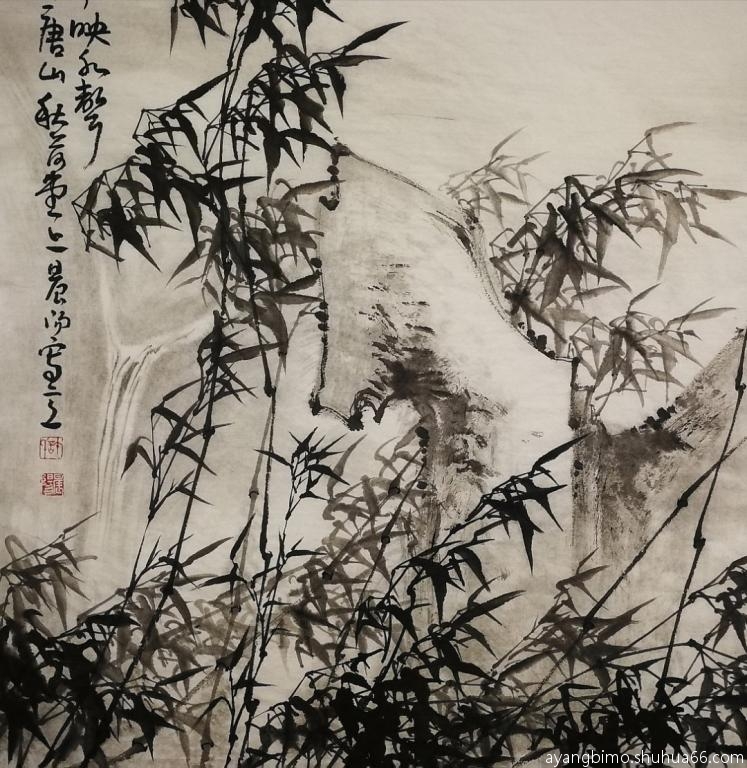 映水聲
唐山秋荷堂上晨陽寫之
ayangbimo.shuhua66.com